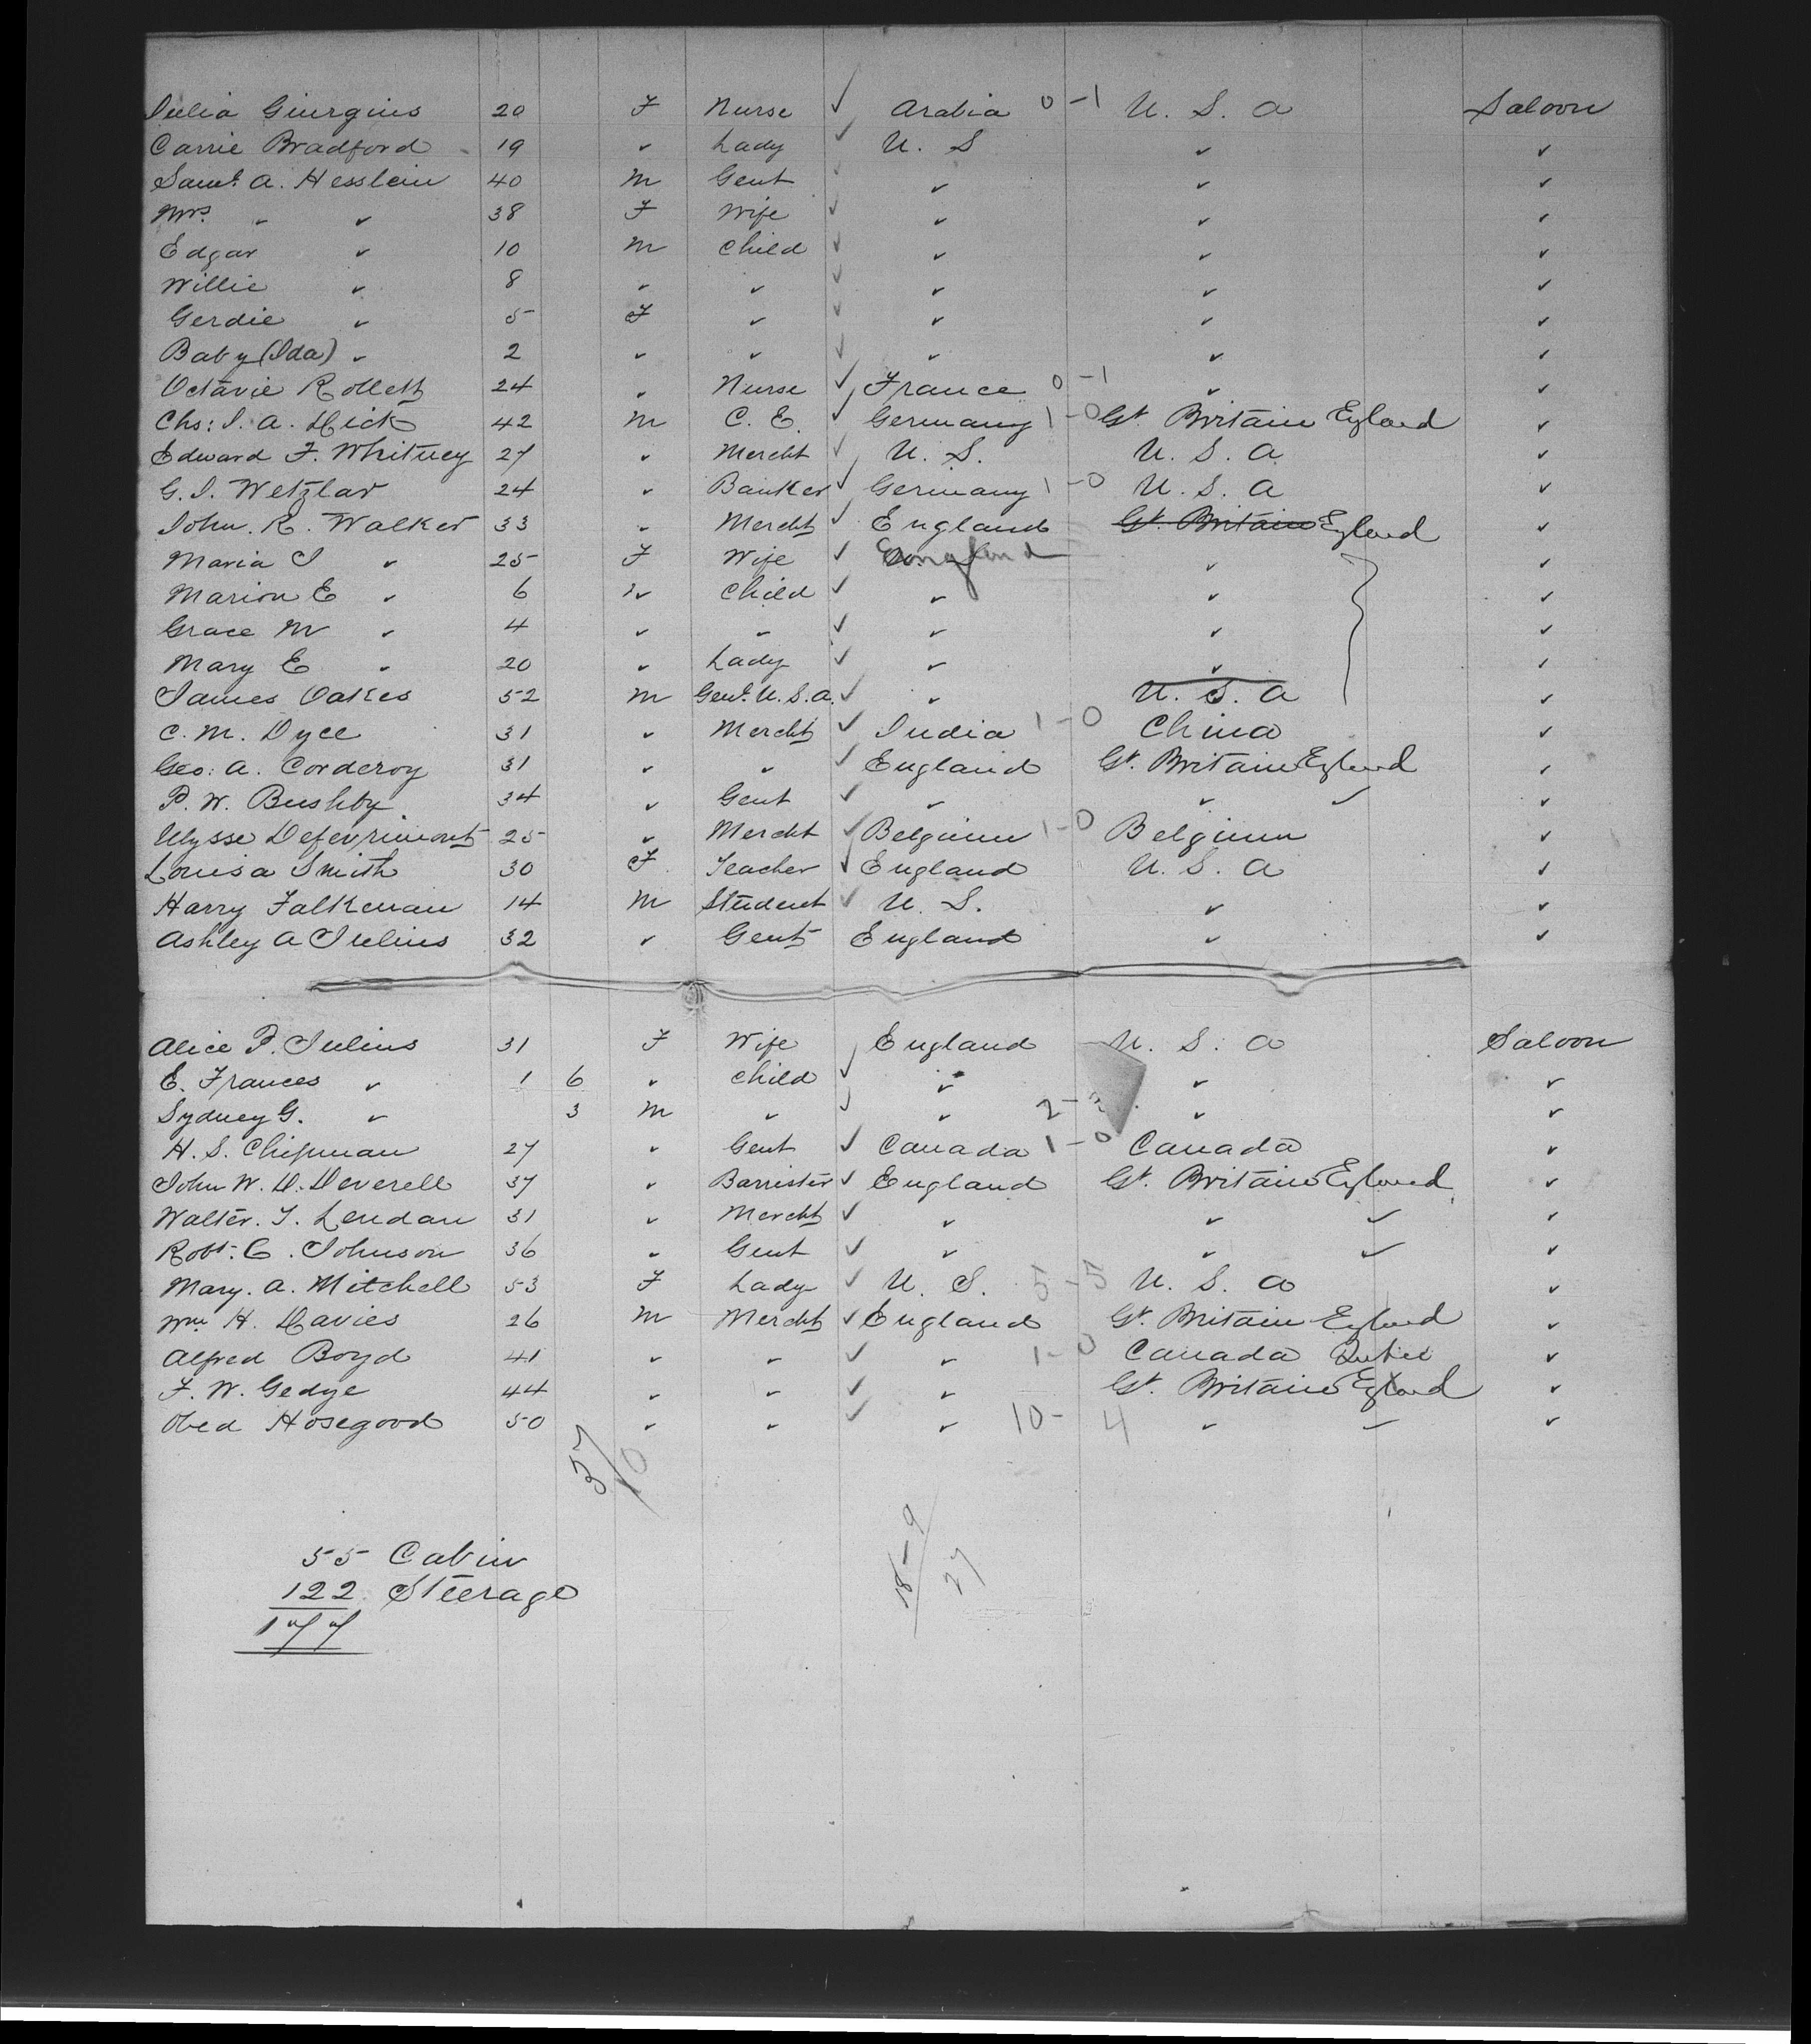 Julia Giurgius 20 F Nurse ✓ Arabia 0-1 U. S. A Saloon
Carrie Bradford 19 " Lady ✓ U. S " "
Saml. A. Hesslein 40 M Gent ✓ " " "
Mrs. " " 38 F Wife ✓ " " "
Edgar " 10 M Child ✓ " " "
Willie " 8 " " ✓ " " "
Gerdie " 5 F " ✓ " " "
Baby (Ida) " 2 " " ✓ " " "
Octavie Rollett 24 " Nurse ✓ France 0-1 " "
Chs: J. A. Hick 42 M C. E. ✓ Germany 1-0 Gt. Britain England "
Edward F. Whitney 27 " Mercht ✓ U. S. U. S. A "
G. J. Wetzlar 24 " Banker ✓ Germany 1-0 U. S. A "
John. R. Walker 33 " Mercht ✓ England Gt. Britain England "
Maria J " 25 F Wife ✓ England " "
Marion E " 6 " Child ✓ " " "
Grace M " 4 " " ✓ " " "
Mary E " 20 " Lady ✓ " " "
James Oakes 52 M Genl. U. S. A. ✓ " U. S. A "
C. M. Dyce 31 " Mercht ✓ India 1-0 China "
Geo: A. Corderoy 31 " " ✓ England Gt. Britain England "
P. W. Bushby 34 " Gent ✓ " " " "
Ulysse Defevrimont 25 " Mercht ✓ Belgium 1-0 Belgium "
Louisa Smith 30 F Teacher ✓ England U. S. A "
Harry Falkenau 14 M Student ✓ U. S. " "
Ashley A Julius 32 " Gent England " "
Alice P. Julius 31 F Wife ✓ England U. S. A Saloon
E. Frances " 1 6 " Child ✓ " " "
Sydney G. " 3 M " ✓ " 2-3 " "
H. S. Chipman 27 " Gent ✓ Canada 1-0 Canada "
John W. H. Deverell 37 " Barrister ✓ England Gt. Britain England "
Walter. T. Lendan 31 " Mercht ✓ " " " "
Robt: C. Johnson 36 " Gent ✓ " " " "
Mary. A. Mitchell 53 F Lady ✓ U. S. 5-5 U. S. A "
Wm H. Davies 26 M Mercht ✓ England Gt. Britain England "
Alfred Boyd 41 " " ✓ " 1-0 Canada Quebec "
F. W. Gedye 44 " " ✓ " Gt. Britain England "
Obed Hosegood 50 " " ✓ " 10-4 " " "
37/10
18-9/27
55 Cabin
122 Steerage
177